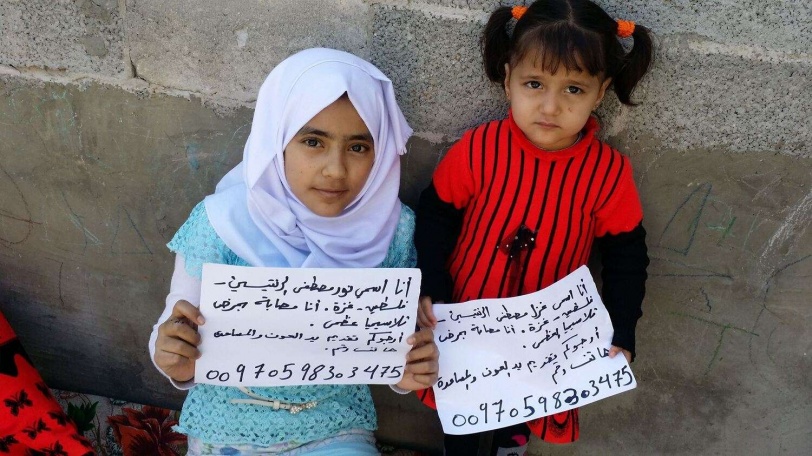 أنا اسمي نور مصطفى الرنتيسي -
فلسطين - غزة . أنا مصابة بمرض
تلاسيميا عظمى .
أرجوكم تقديم يد العون والمساعدة
هاتف رقم .
00970598303475
أنا اسمي غزل مصطفى الرنتيسي -
فلسطين - غزة . أنا مصابة بمرض
تلاسيميا العظمى .
أرجوكم وتقديم يد العون والمساعدة
هاتف رقم
00970598303475